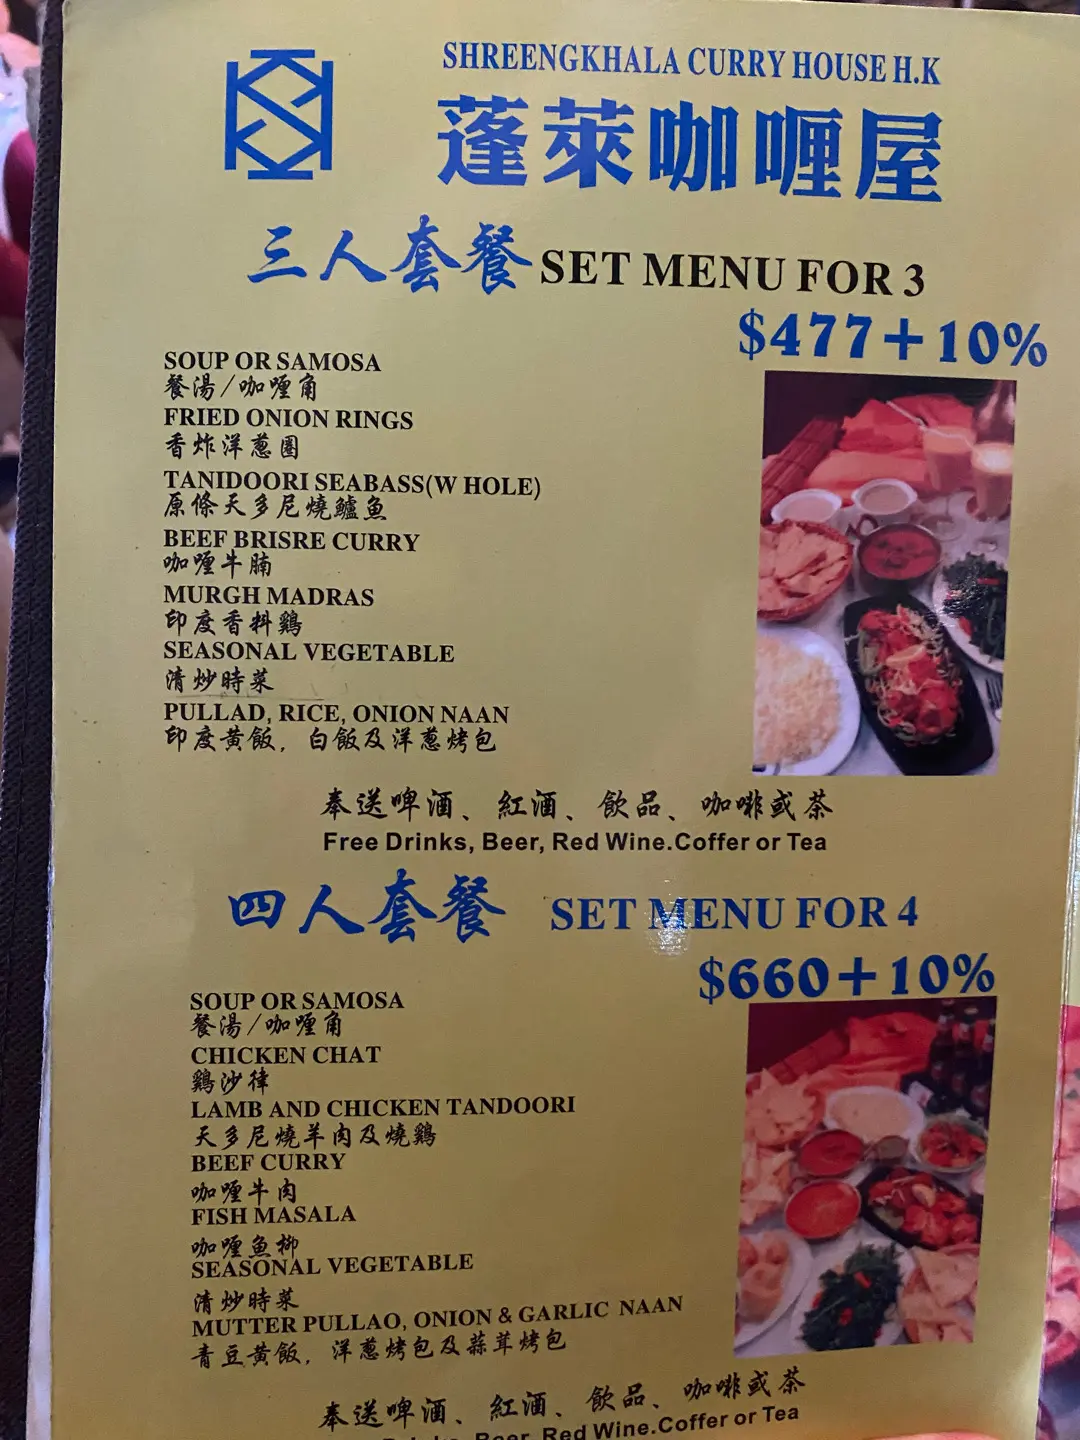 SHREENGKHALA CURRY HOUSE H.K
蓬萊咖喱屋
三人套餐 SET MENU FOR 3
$477+10%
SOUP OR SAMOSA
餐湯/咖喱角
FRIED ONION RINGS
香炸洋蔥圈
TANIDOORI SEABASS(W HOLE)
原條天多尼燒鱸魚
BEEF BRISRE CURRY
咖喱牛腩
MURGH MADRAS
印度香料鷄
SEASONAL VEGETABLE
清炒時菜
PULLAD, RICE, ONION NAAN
印度黄飯，白飯及洋蔥烤包
奉送啤酒、紅酒、飲品、咖啡或茶
Free Drinks, Beer, Red Wine.Coffer or Tea
四人套餐 SET MENU FOR 4
$660+10%
SOUP OR SAMOSA
餐湯/咖喱角
CHICKEN CHAT
鷄沙律
LAMB AND CHICKEN TANDOORI
天多尼燒羊肉及燒鷄
BEEF CURRY
咖喱牛肉
FISH MASALA
咖喱魚柳
SEASONAL VEGETABLE
清炒時菜
MUTTER PULLAO, ONION & GARLIC NAAN
青豆黄飯，洋蔥烤包及蒜茸烤包
奉送啤酒、紅酒、飲品、咖啡或茶
Drinks, Beer, Red Wine.Coffer or Tea